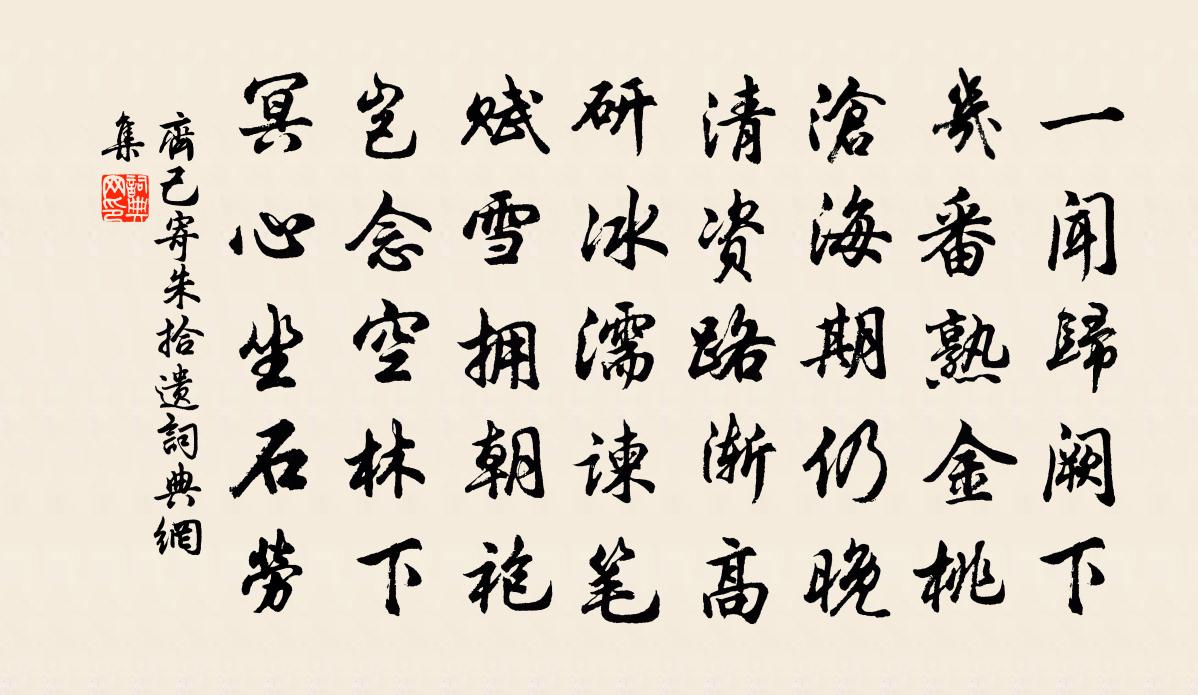 一闻歸阙下
幾番熟金桃
滄海期仍晚
清资路渐高
研冰濡谏笔
赋雪拥朝袍
岂念空林下
冥心坐石劳
齊己寄朱拾遗詞典網
集
詞典網印